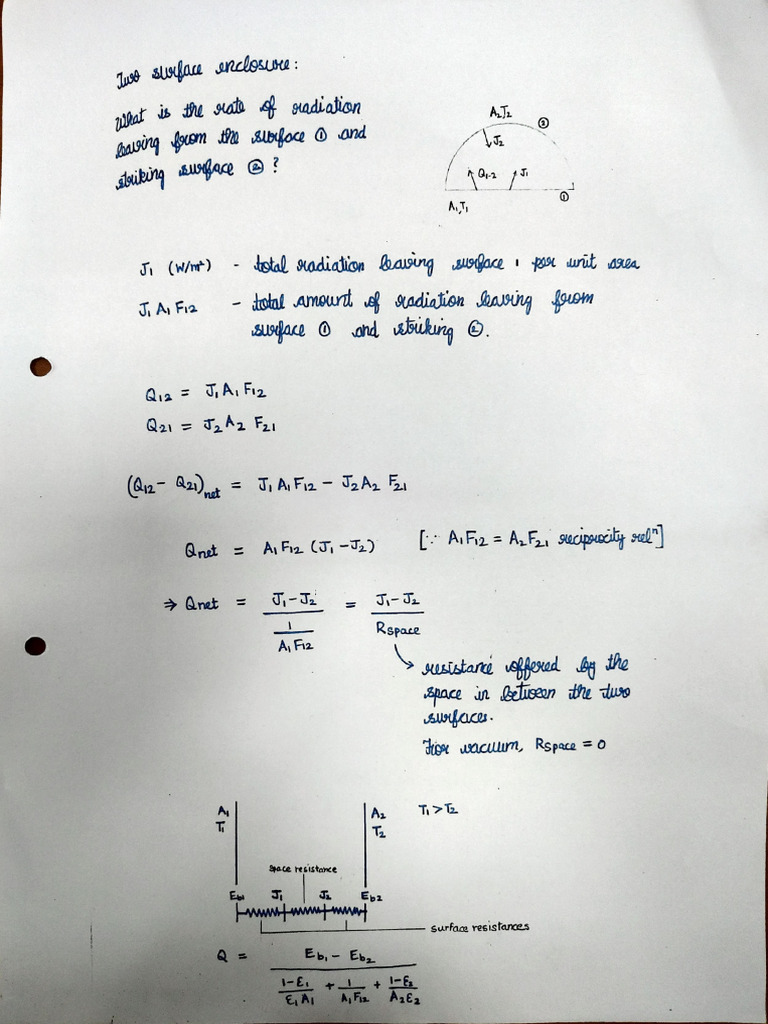 Two surface enclosure:
What is the rate of radiation
leaving from the surface ① and
striking surface ② ?
A₂,T₂
②
J₂
Q₁₋₂
J₁
①
A₁,T₁
J₁ (W/m²) - total radiation leaving surface 1 per unit area
J₁ A₁ F₁₂ - total amount of radiation leaving from
surface ① and striking ②.
Q₁₂ = J₁ A₁ F₁₂
Q₂₁ = J₂ A₂ F₂₁
(Q₁₂ - Q₂₁)net = J₁ A₁ F₁₂ - J₂ A₂ F₂₁
Qnet = A₁ F₁₂ (J₁ - J₂) [∵ A₁F₁₂ = A₂F₂₁ reciprocity relⁿ]
⇒ Qnet = (J₁ - J₂) / (1 / A₁F₁₂) = (J₁ - J₂) / Rspace
resistance offered by the
space in between the two
surfaces.
For vacuum, Rspace = 0
A₁ A₂ T₁ > T₂
T₁ T₂
space resistance
Eb₁ J₁ J₂ Eb₂
surface resistances
Q = (Eb₁ - Eb₂) / ((1-ε₁)/(ε₁A₁) + 1/(A₁F₁₂) + (1-ε₂)/(A₂ε₂))